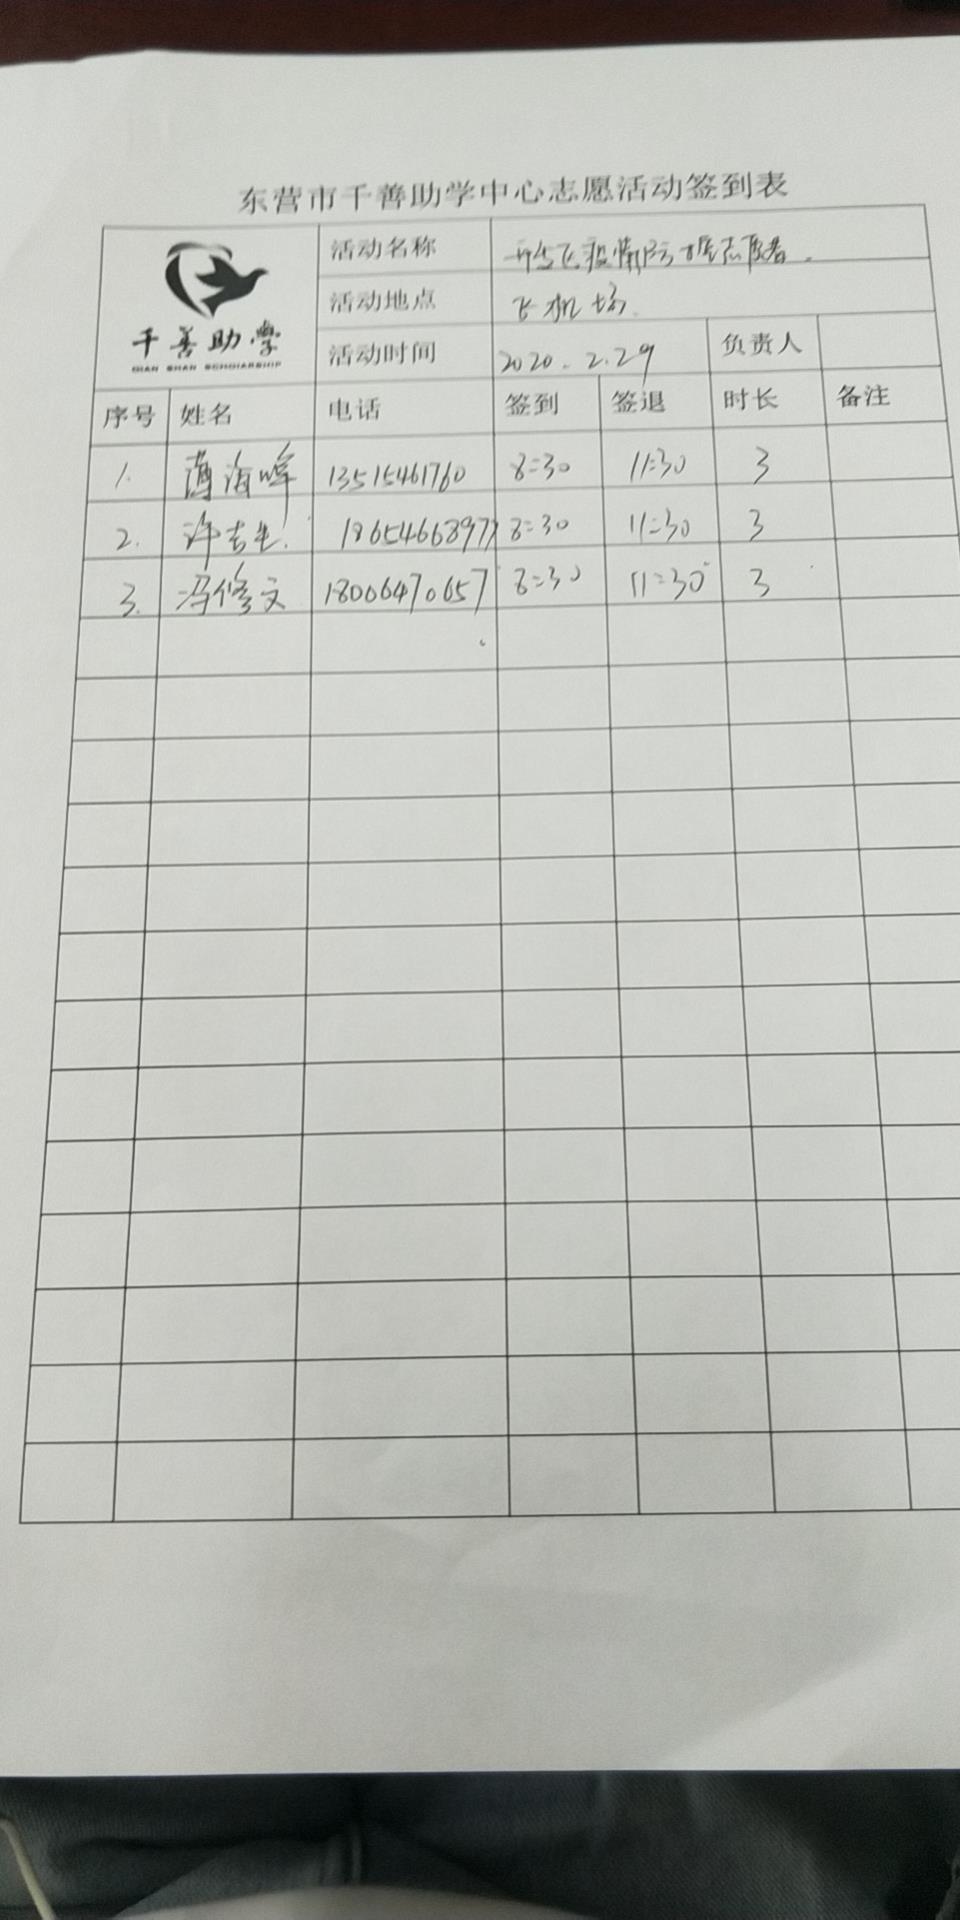 东营市千善助学中心志愿活动签到表
千善助學
QIAN SHAN SCHOLARSHIP
活动名称 疫情防控志愿者.
活动地点 飞机场
活动时间 2020.2.29 负责人
序号 姓名 电话 签到 签退 时长 备注
1. 薄海峰 13515461760 8:30 11:30 3
2. 许吉 18654668977 8:30 11:30 3
3. 冯修文 18006470657 8:30 11:30 3